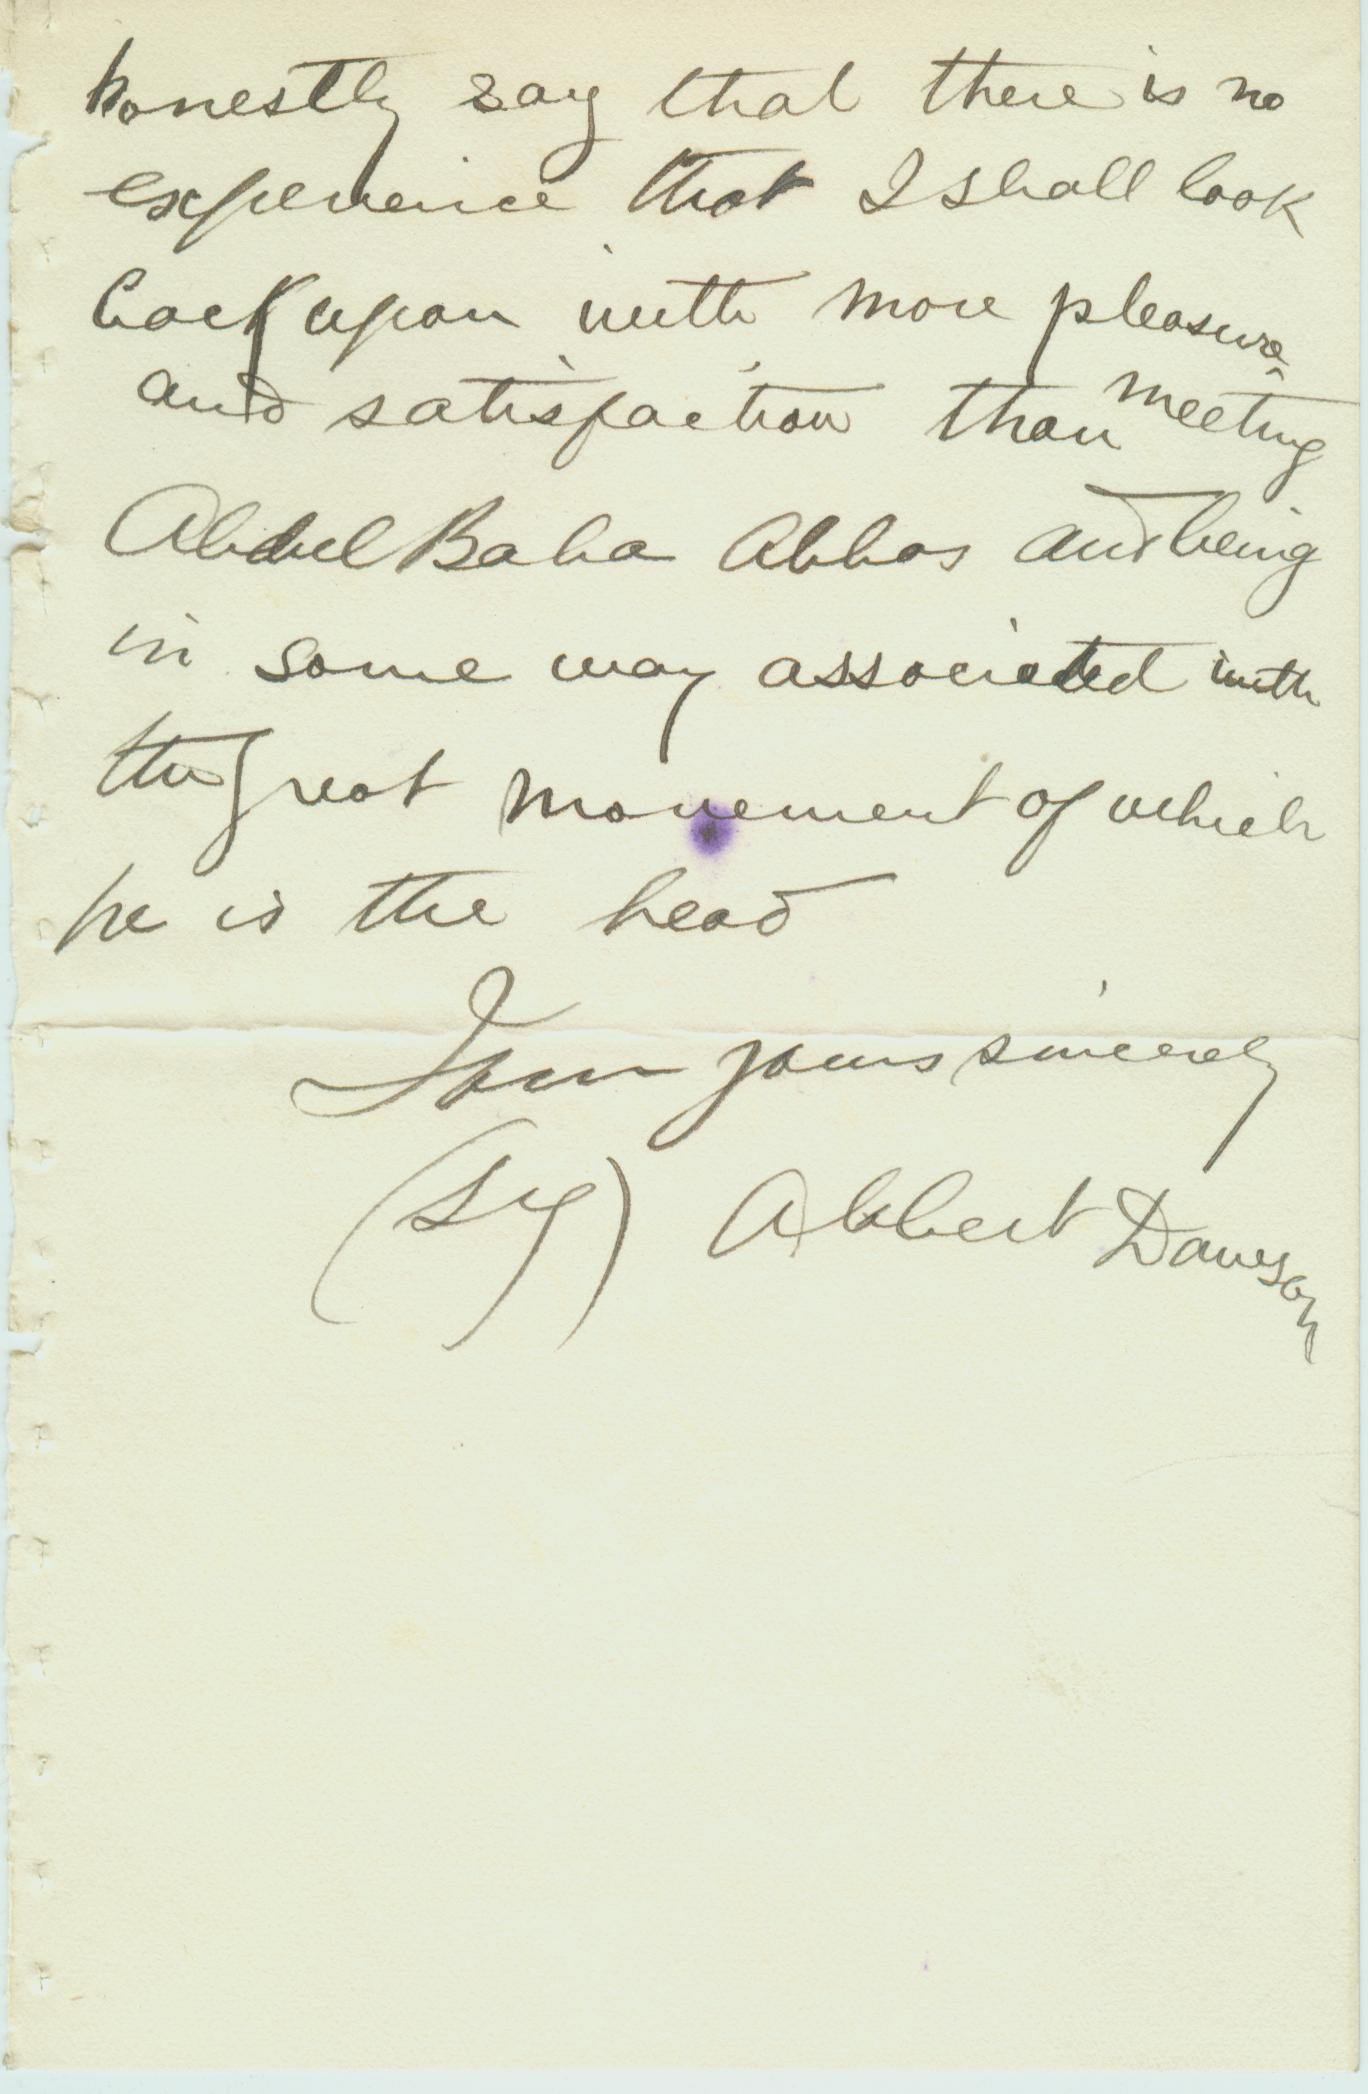 honestly say that there is no
experience that I shall look
back upon with more pleasure
and satisfaction than meeting
Abdul Baha Abbas and being
in some way associated with
the great movement of which
he is the head
I am yours sincerely
(Sg) Albert Dawson